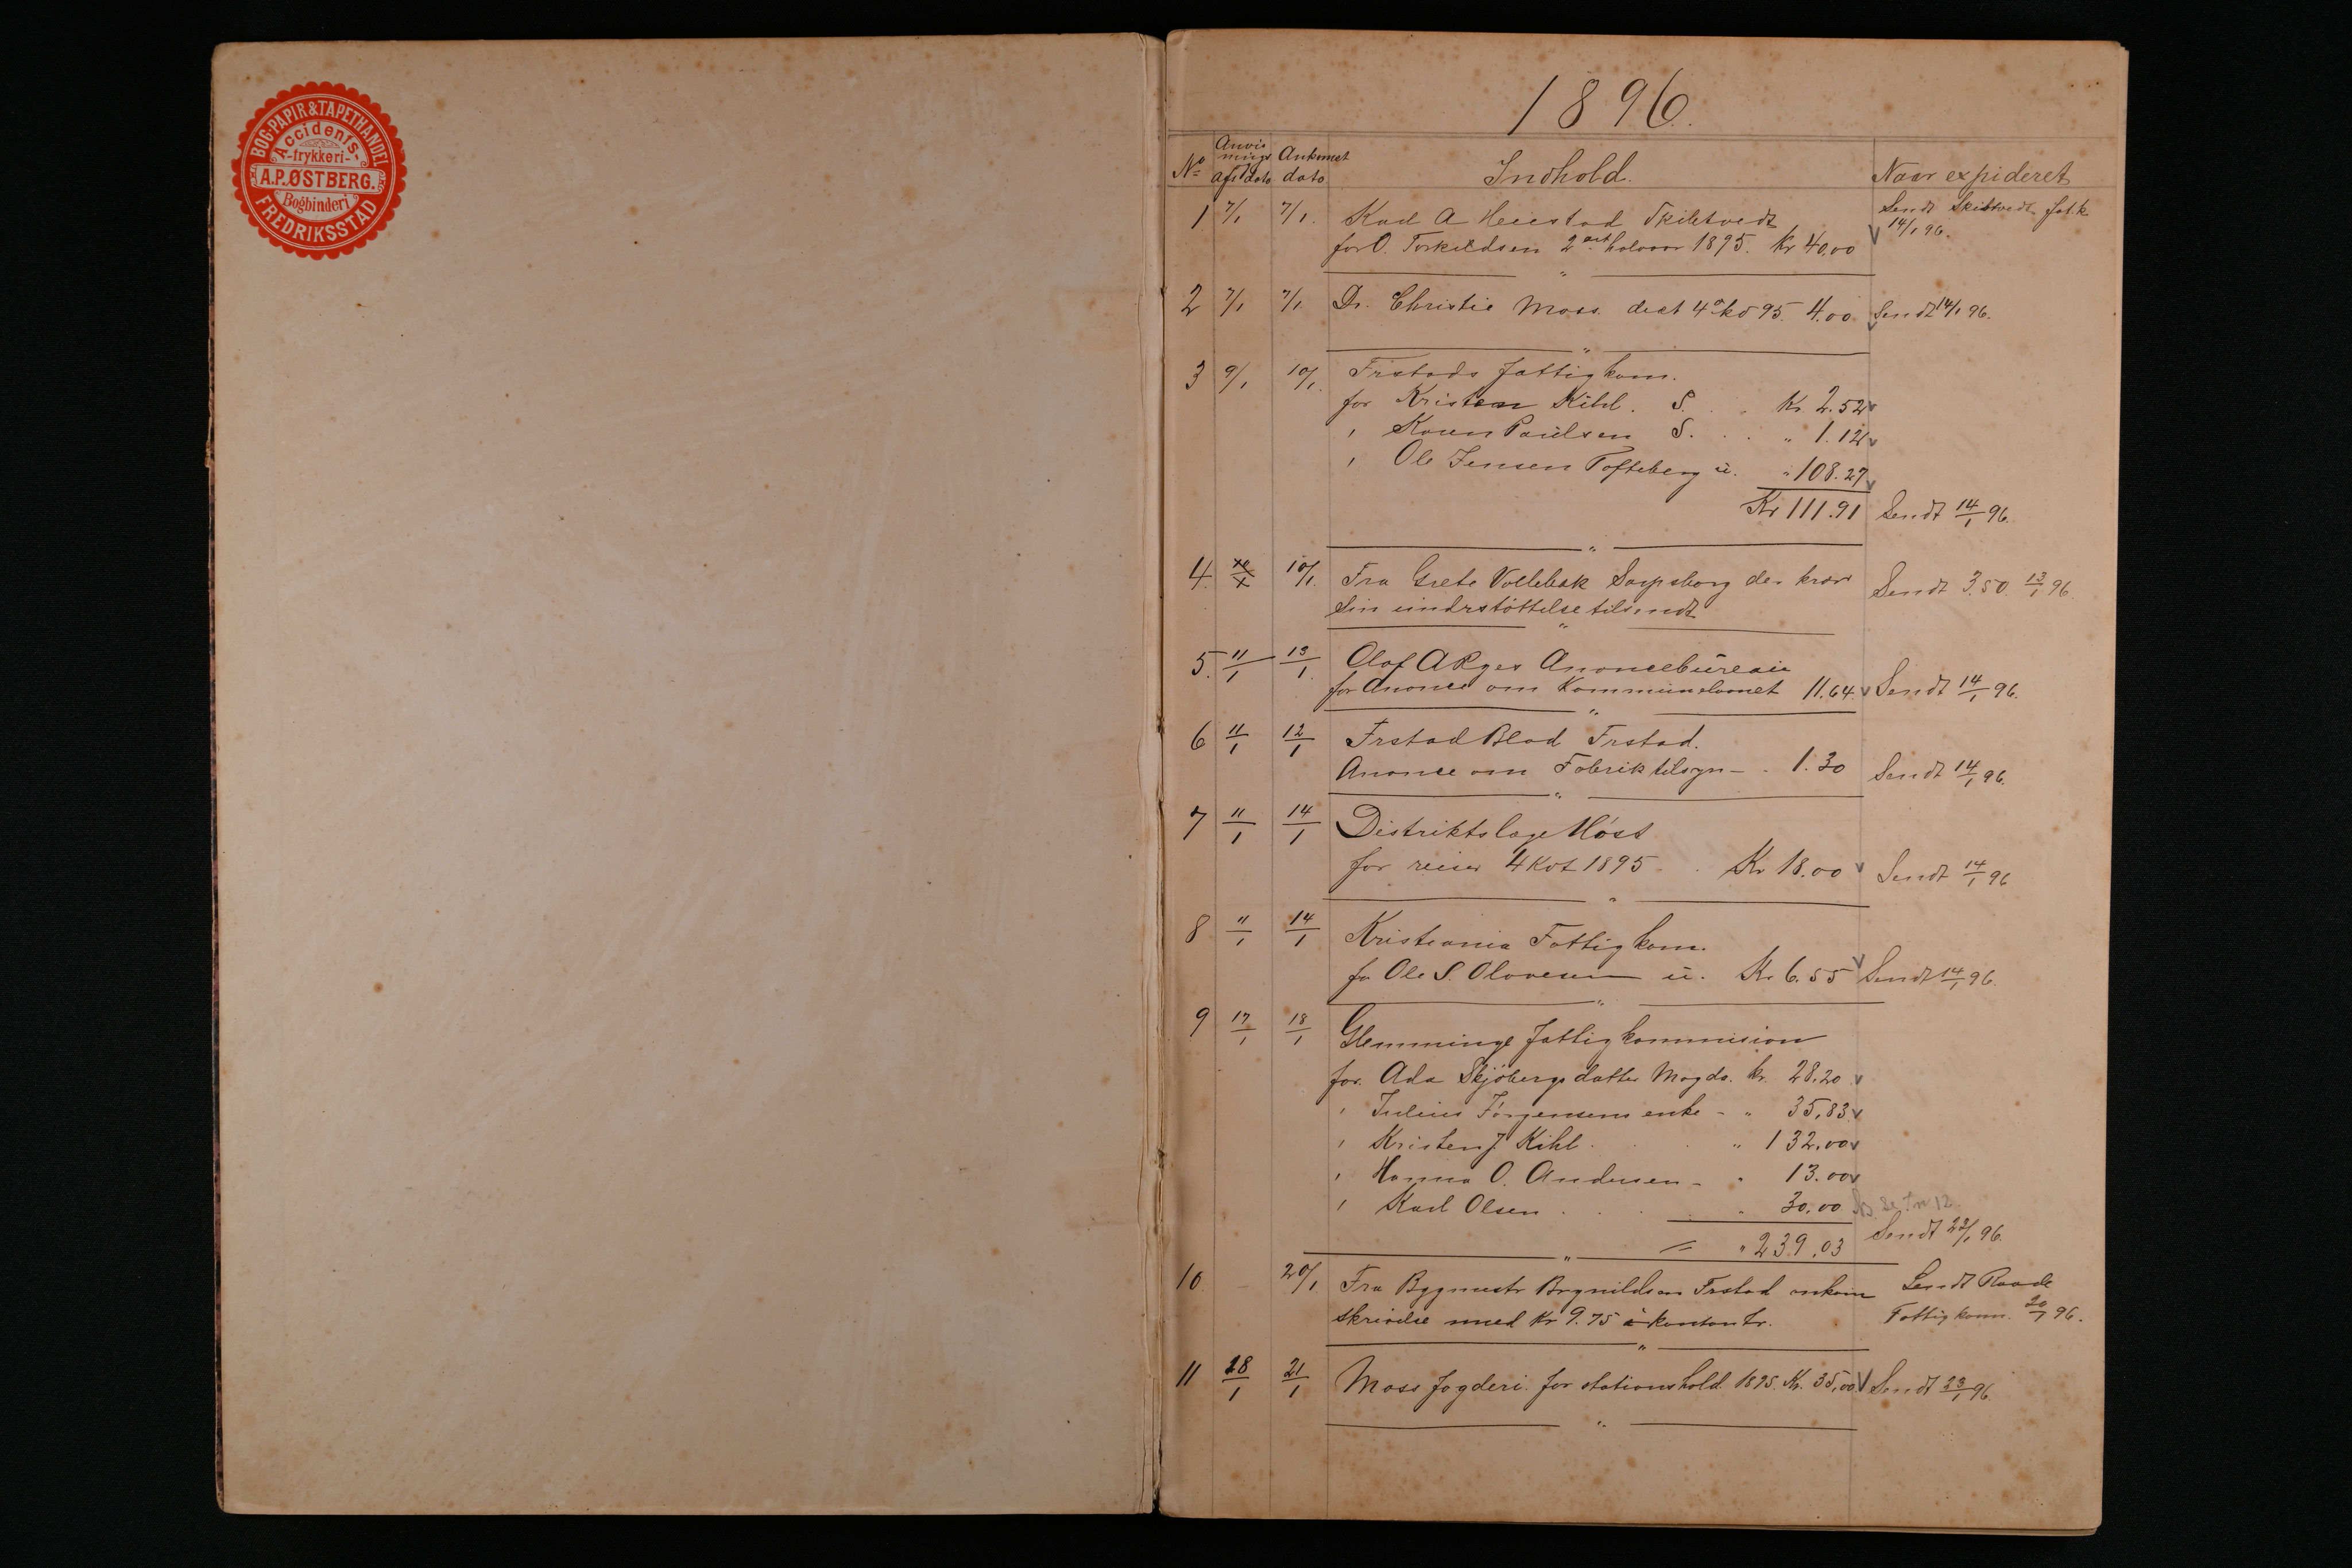 BOG-PAPIR & TAPETHANDEL
Accidens-
-trykkeri-
A.P. ØSTBERG.
Bogbinderi
FREDRIKSSTAD
1896.
No Anvis nings Afs. dato Ankomst dato Indhold. Naar expideret
1 7/1 7/1. Karl A Heiestad Skibtvedt Sendt Skibtvedt fat.k.
for O. Torkildsen 2det halvaar 1895. Kr 40.00 v 14/1 96.
2 7/1 7/1 Dr. Christie Moss. 4 95. 4.00 v Sendt 14/1 96.
3 9/1 10/1. Frstads fattigkom.
for Kristen Kihl. S. . . Kr. 2.52 v
" Karen Paulsen S. . . " 1.12 v
" Ole Jensen Tofteberg u. " 108.27 v
Kr 111.91 Sendt 14/1 96.
4. 10/1. Fra Grete Vollebæk Sarpsborg der Sendt 3.50 13/1 96.
sin understøttelse tilsendt
5. 11/1 13/1. Olaf A Ryes Anoncebureau
for Anonce om Kommunelaanet 11.64 v Sendt 14/1 96.
6 11/1 12/1 Frstad Blad Frstad.
Anonce om Fabriktilsyn - . 1.30 Sendt 14/1 96.
7 11/1 14/1 Distriktslæge Høst
for reiser 4 Kvt 1895 . . Kr 18.00 v Sendt 14/1 96
8 11/1 14/1 Kristiania Fattigkom.
for Ole S. Olavesen u. Kr 6.55 v Sendt 14/1 96.
9 17/1 18/1 Glemminge fattigkommision
for Ada Skjöbergsdatter Magds. kr. 28.20 v
" Julius Jörgensens enke - " 35,83 v
" Kristen J Kihl . . " 132.00 v
" Hanna O. Andersen - " 13.00 v
" Karl Olsen . . . " 30.00 Se No 12
= " 239.03 Sendt 23/1 96.
10 20/1 Fra Bygmestr Brynildsen Frstad ankom Sendt Raade
skrivelse med Kr 9.75 i kontanter. Fattigkom. 20/1 96.
11 18/1 21/1 Moss fogderi for stationshold 1895. Kr. 35,00 v Sendt 23/1 96.